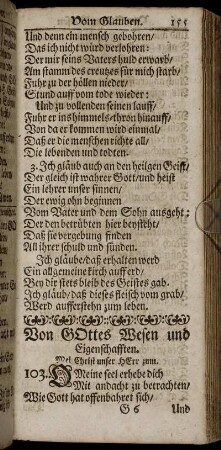 Vom Glauben. 155
Und denn ein mensch gebohren/
Das ich nicht würd verlohren:
Der mir seins Vaters huld erwarb/
Am stamm des creutzes für mich starb/
Fuhr zu der höllen nieder/
Stund auff vom tode wieder:
Und zu vollenden seinen lauff/
Fuhr er ins himmels-thron hinauff/
Von da er kommen wird einmal/
Daß er die menschen richte all/
Die lebenden und todten.
3. Jch gläub auch an den heilgen Geist/
Der gleich ist wahrer Gott/und heist
Ein lehrer unser sinnen/
Der ewig ohn beginnen
Vom Vater und dem Sohn ausgeht:
Der den betrübten hier beysteht/
Daß sie vergebung finden
All ihrer schuld und sünden.
Jch gläube/daß erhalten werd
Ein allgemeine kirch auff erd/
Bey dir stets bleib des Geistes gab.
Jch gläub/daß dieses fleisch vom grab/
Werd aufferstehn zum leben.
Von GOttes Wesen und
Eigenschafften.
Mel. Christ unser HErr zum.
103. O Meine seel erhebe dich
Mit andacht zu betrachten/
Wie Gott hat offenbahret sich/
G 6 Und